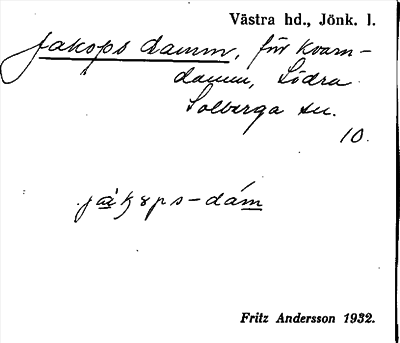 Västra hd., Jönk. l.
Jakops damm, för kvarn-
damm, Södra
Solberga sn.
10.
jàkɤps-dám
Fritz Andersson 1932.